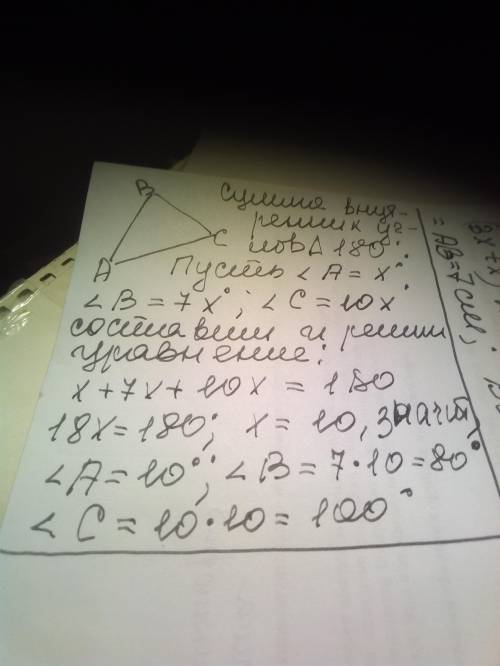 B
C
A
Сумма внут-
ренних уг-
лов Δ 180°.
Пусть ∠A = x°
∠B = 7x°; ∠C = 10x
составим и решим
уравнение:
x + 7x + 10x = 180
18x = 180; x = 10, значит
∠A = 10°; ∠B = 7·10 = 80°
∠C = 10·10 = 100°
= AB = 7см,